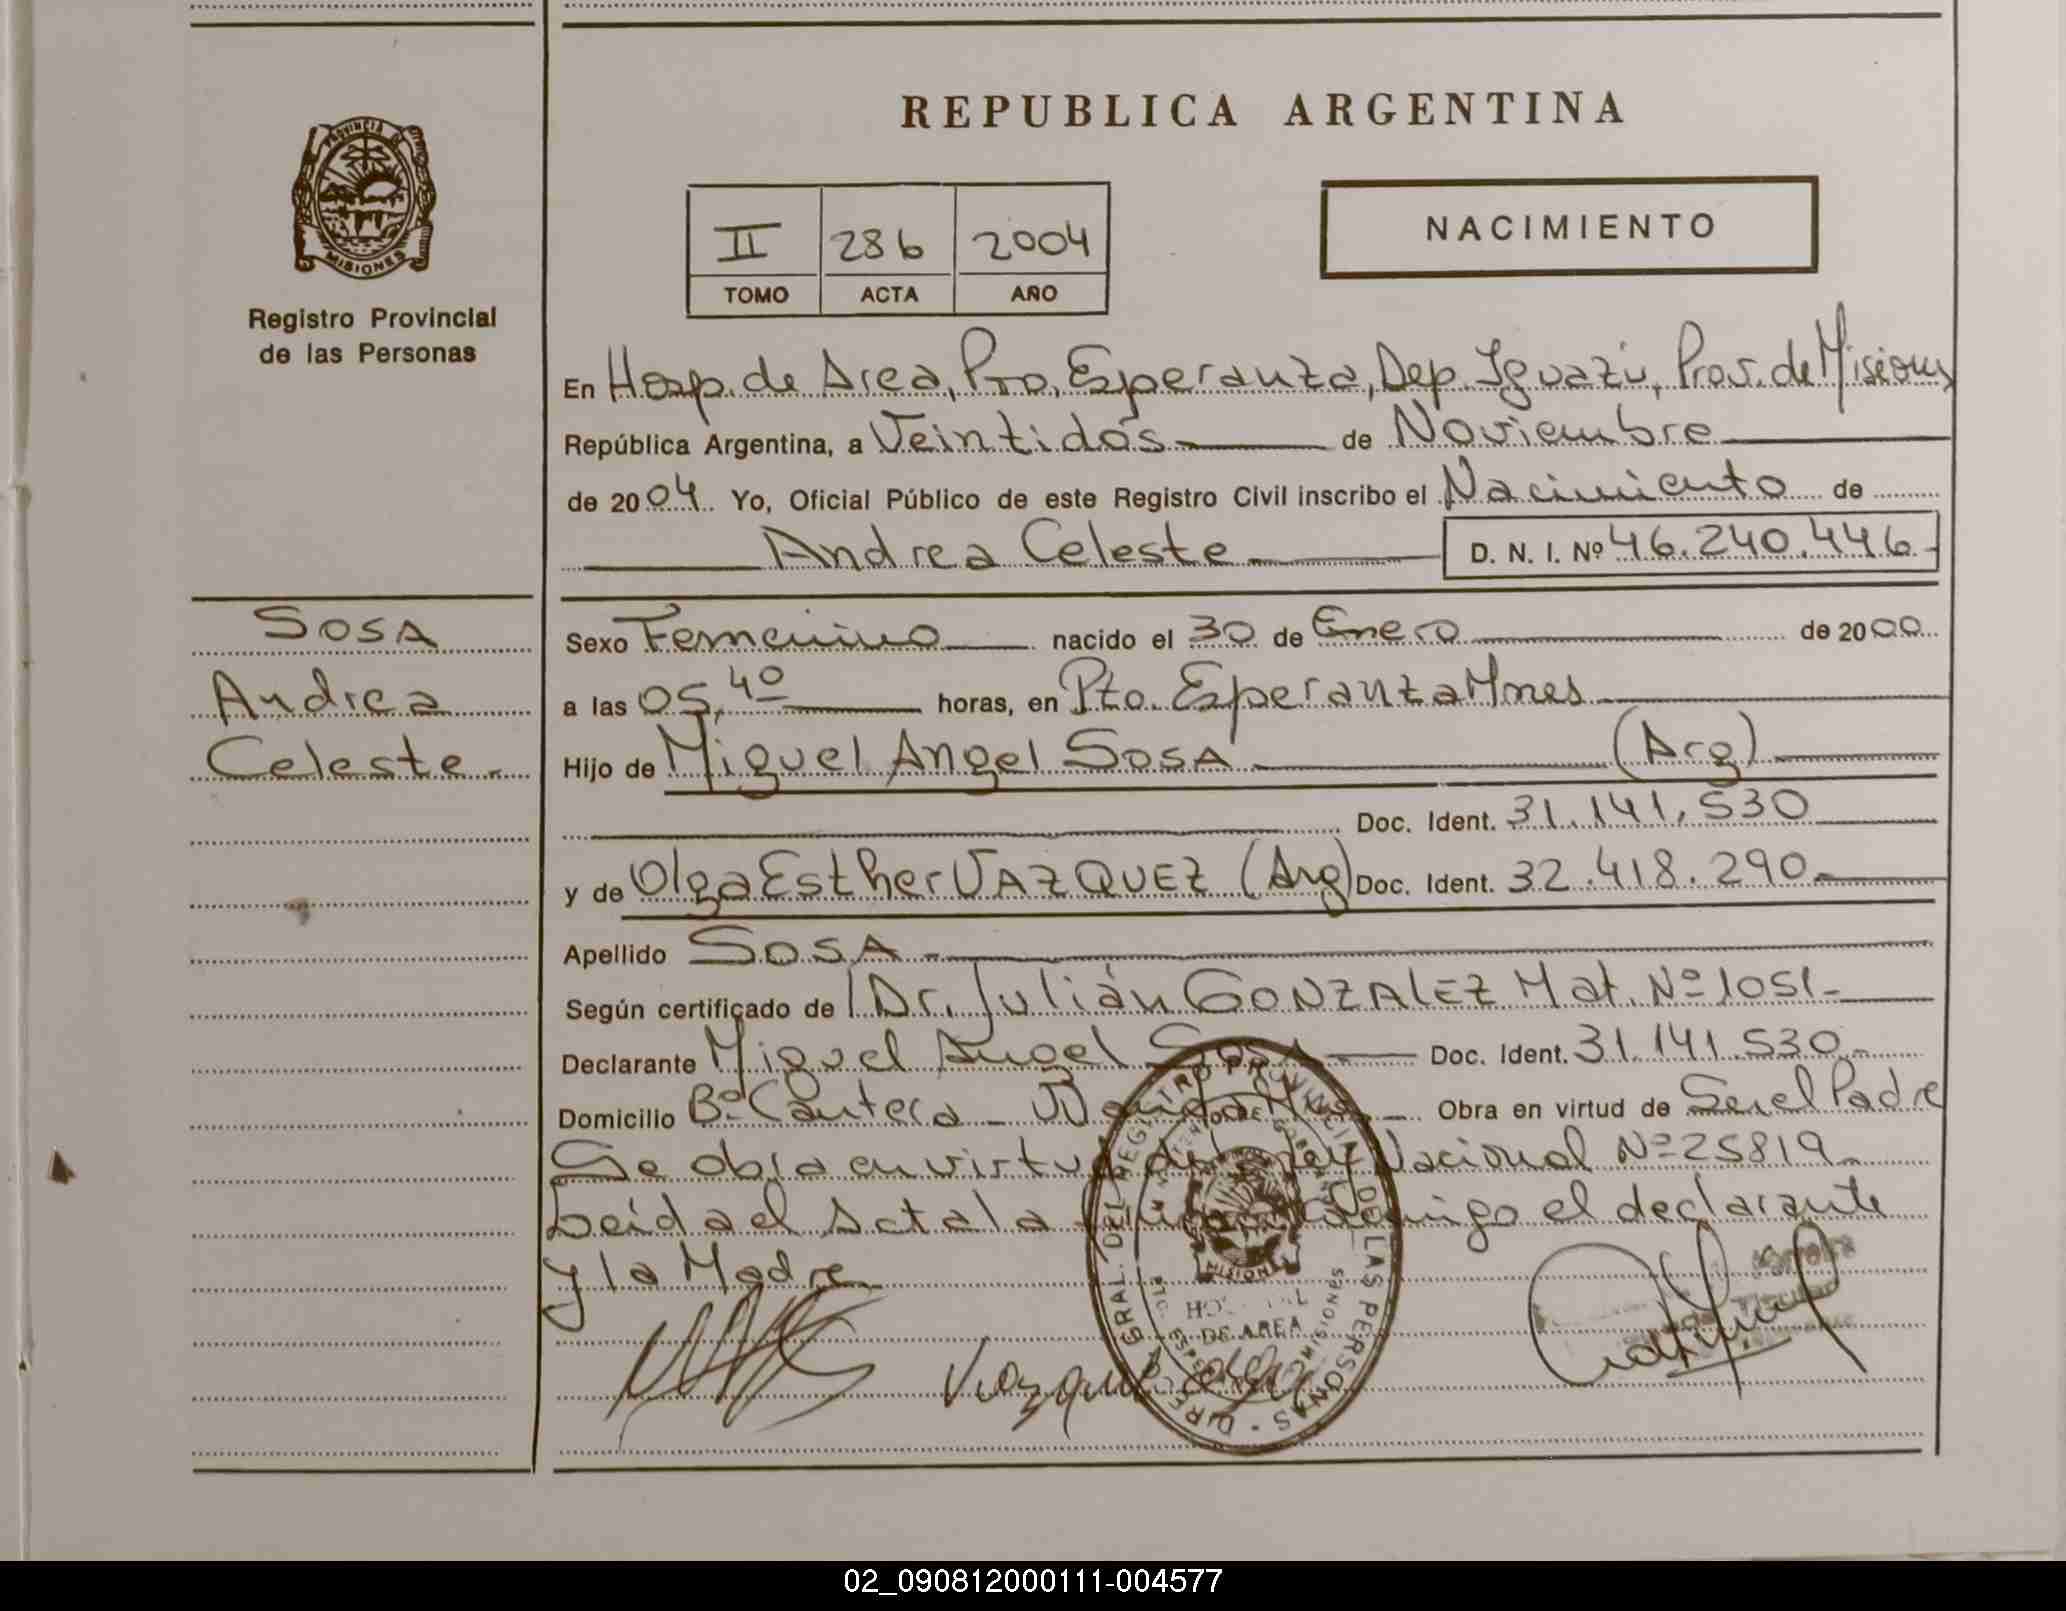 REPUBLICA ARGENTINA
PROVINCIA DE
MISIONES
Registro Provincial
de las Personas
II 286 2004
TOMO ACTA AÑO
NACIMIENTO
En Hosp. de Area, Pto. Esperanza, Dep. Iguazú, Prov. de Misiones
República Argentina, a Veintidós de Noviembre
de 2004 Yo, Oficial Público de este Registro Civil inscribo el Nacimiento de
Andrea Celeste D. N. I. Nº 46.240.446
SOSA
Andrea
Celeste
Sexo Femenino nacido el 30 de Enero de 2000
a las 05,40 horas, en Pto. Esperanza Mnes
Hijo de Miguel Angel SOSA (Arg)
Doc. Ident. 31.141.530
y de Olga Esther VAZQUEZ (Arg) Doc. Ident. 32.418.290
Apellido SOSA
Según certificado de Dr. Julián GONZALEZ Mat. Nº 1051
Declarante Miguel Angel Sosa Doc. Ident. 31.141.530
Domicilio Bº Cantera - Obra en virtud de Ser el Padre
Se obra en virtud de Ley Nacional Nº 25819
Leída el Acta la conmigo el declarante
y la Madre
DIREC. GRAL. DEL REGISTRO PROVINCIAL DE LAS PERSONAS
MISIONES
DE AREA
Vazquez Olga
02_090812000111-004577